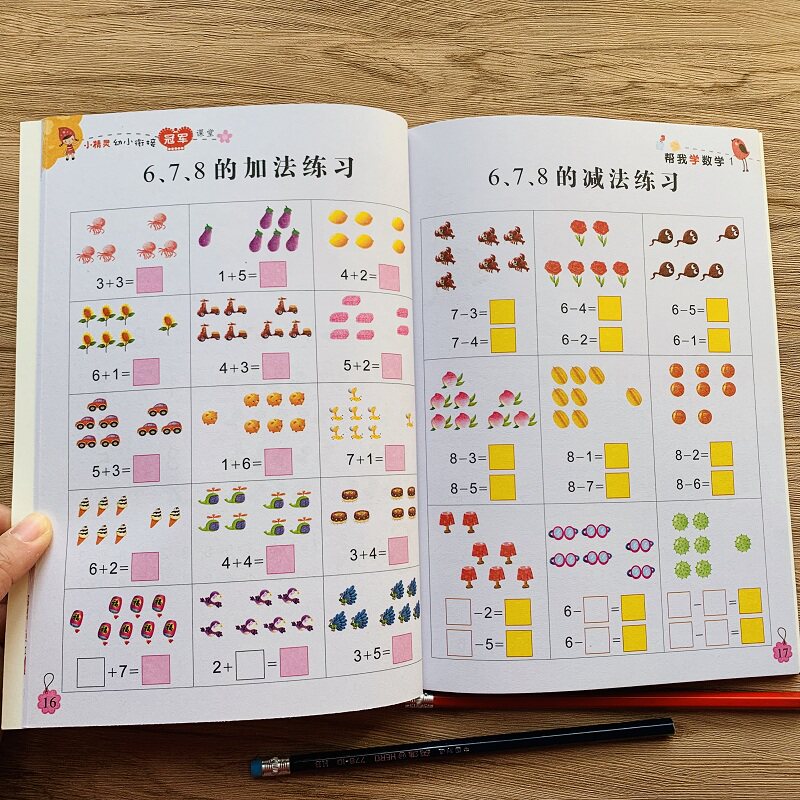 小精灵 幼小衔接 冠军 课堂
6、7、8的加法练习
3+3=
1+5=
4+2=
6+1=
4+3=
5+2=
5+3=
1+6=
7+1=
6+2=
4+4=
3+4=
+7=
2+ =
3+5=
16
帮我学数学 1
6、7、8的减法练习
7-3=
6-4=
6-5=
7-4=
6-2=
6-1=
8-3=
8-1=
8-2=
8-5=
8-7=
8-6=
-2=
6- =
- =
-5=
6- =
- =
17